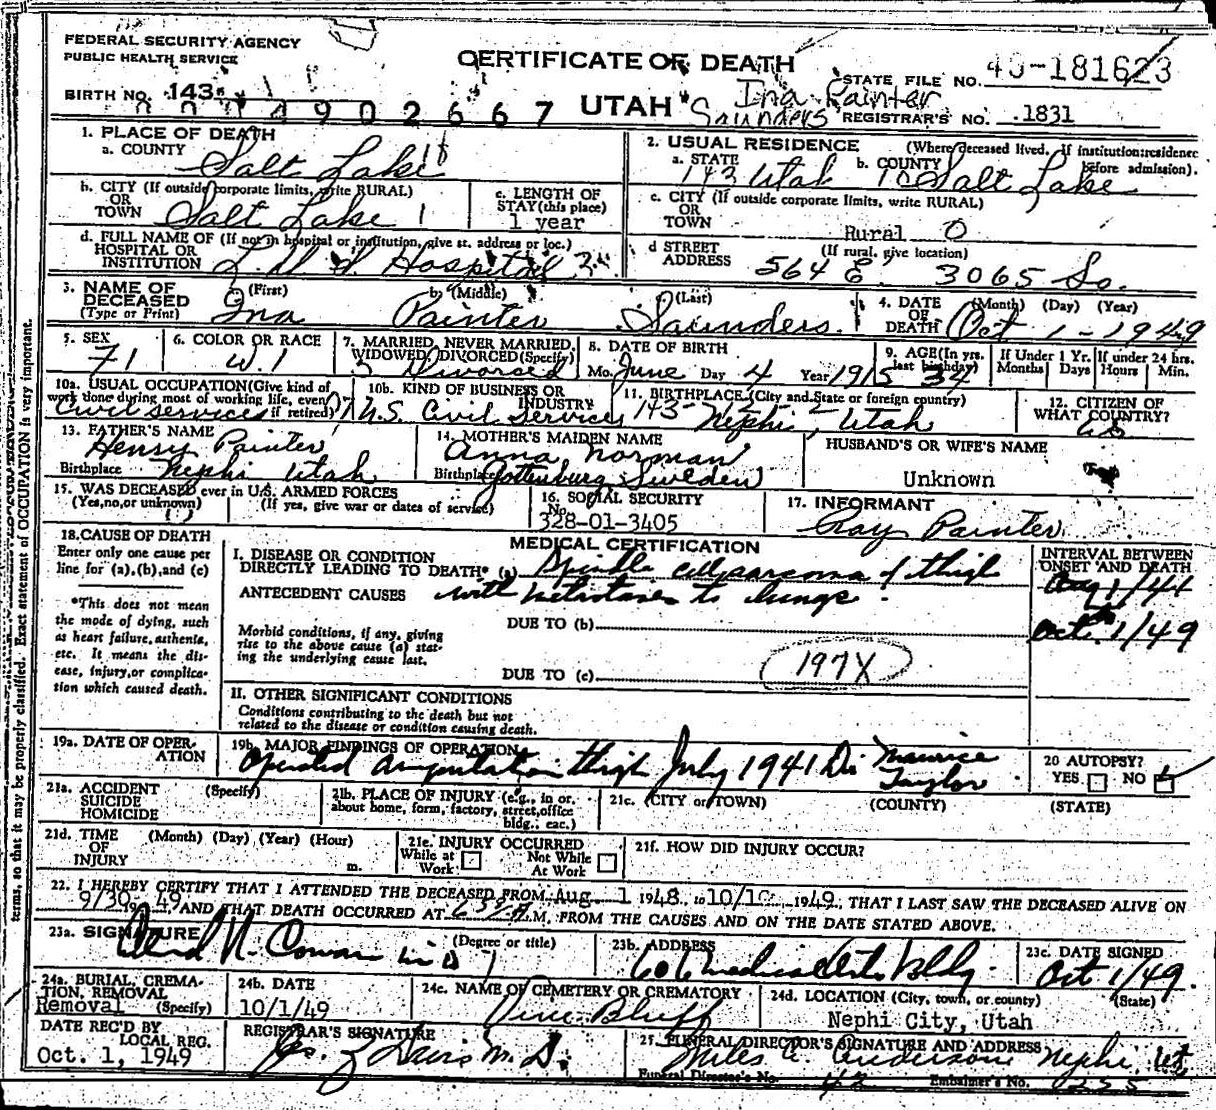 FEDERAL SECURITY AGENCY
PUBLIC HEALTH SERVICE
CERTIFICATE OF DEATH
STATE FILE NO. 49-181623
BIRTH NO. 143
4902667
UTAH
Ina Painter
Saunders
REGISTRAR'S NO. 1831
1. PLACE OF DEATH
a. COUNTY Salt Lake 18
2. USUAL RESIDENCE (Where deceased lived. If institution: residence before admission).
a. STATE 143 Utah b. COUNTY Salt Lake
b. CITY (If outside corporate limits, write RURAL)
OR
TOWN Salt Lake 1
c. LENGTH OF
STAY (this place)
1 year
c. CITY (If outside corporate limits, write RURAL)
OR
TOWN Rural 0
d. FULL NAME OF (If not in hospital or institution, give st. address or loc.)
HOSPITAL OR
INSTITUTION L.D.S. Hospital
d STREET (If rural, give location)
ADDRESS 564 E. 3065 So.
3. NAME OF
DECEASED
(Type or Print)
(First) Ina
b. (Middle) Painter
(Last) Saunders
4. DATE
OF
DEATH
(Month) (Day) (Year)
Oct 1-1949
5. SEX
F 1
6. COLOR OR RACE
W. 1
7. MARRIED, NEVER MARRIED,
WIDOWED, DIVORCED (Specify)
Divorced
8. DATE OF BIRTH
Mo. June Day 4 Year 1915
9. AGE (In yrs.
last birthday)
34
If Under 1 Yr.
Months Days
If under 24 hrs.
Hours Min.
10a. USUAL OCCUPATION (Give kind of
work done during most of working life, even
if retired)
Civil Services
10b. KIND OF BUSINESS OR
INDUSTRY
U.S. Civil Services
11. BIRTHPLACE (City and State or foreign country)
143- Nephi, Utah
12. CITIZEN OF
WHAT COUNTRY?
US
13. FATHER'S NAME
Henry Painter
Birthplace Nephi Utah
14. MOTHER'S MAIDEN NAME
Anna Norman
Birthplace Gottenburg Sweden
HUSBAND'S OR WIFE'S NAME
Unknown
15. WAS DECEASED ever in U.S. ARMED FORCES
(Yes, no, or unknown) (If yes, give war or dates of service)
16. SOCIAL SECURITY
No.
328-01-3405
17. INFORMANT
Ray Painter
18. CAUSE OF DEATH
Enter only one cause per
line for (a), (b), and (c)
*This does not mean
the mode of dying, such
as heart failure, asthenia,
etc. It means the dis-
ease, injury, or complica-
tion which caused death.
MEDICAL CERTIFICATION
I. DISEASE OR CONDITION
DIRECTLY LEADING TO DEATH* (a) Spindle cell sarcoma of thigh
ANTECEDENT CAUSES with metastases to lungs.
DUE TO (b)
Morbid conditions, if any, giving
rise to the above cause (a) stat-
ing the underlying cause last.
DUE TO (c)
197X
INTERVAL BETWEEN
ONSET AND DEATH
Oct. 1/49
II. OTHER SIGNIFICANT CONDITIONS
Conditions contributing to the death but not
related to the disease or condition causing death.
19a. DATE OF OPER-
ATION
19b. MAJOR FINDINGS OF OPERATION
Operated amputation thigh July 1941 Dr Maurice
Taylor
20 AUTOPSY?
YES NO
21a. ACCIDENT (Specify)
SUICIDE
HOMICIDE
21b. PLACE OF INJURY (e.g., in or
about home, form, factory, street, office
bldg., eac.)
21c. (CITY or TOWN) (COUNTY) (STATE)
21d. TIME (Month) (Day) (Year) (Hour)
OF
INJURY m.
21e. INJURY OCCURRED
While at Not While
Work At Work
21f. HOW DID INJURY OCCUR?
22. I HEREBY CERTIFY THAT I ATTENDED THE DECEASED FROM Aug. 1 1948, to 10/1 1949, THAT I LAST SAW THE DECEASED ALIVE ON
9/30 1949, AND THAT DEATH OCCURRED AT M, FROM THE CAUSES AND ON THE DATE STATED ABOVE.
23a. SIGNATURE (Degree or title)
23b. ADDRESS
606 Medical Arts Bldg.
23c. DATE SIGNED
Oct 1/49.
24a. BURIAL, CREMA-
TION, REMOVAL
Removal (Specify)
24b. DATE
10/1/49
24c. NAME OF CEMETERY OR CREMATORY
Vine Bluff
24d. LOCATION (City, town, or county) (State)
Nephi City, Utah
DATE REC'D BY
LOCAL REG.
Oct. 1, 1949
REGISTRAR'S SIGNATURE
M.D.
25. FUNERAL DIRECTOR'S SIGNATURE AND ADDRESS
Miles A. Anderson Nephi, Ut.
Funeral Director's No. 42 Embalmer's No.
terms, so that it may be properly classified. Exact statement of OCCUPATION is very important.